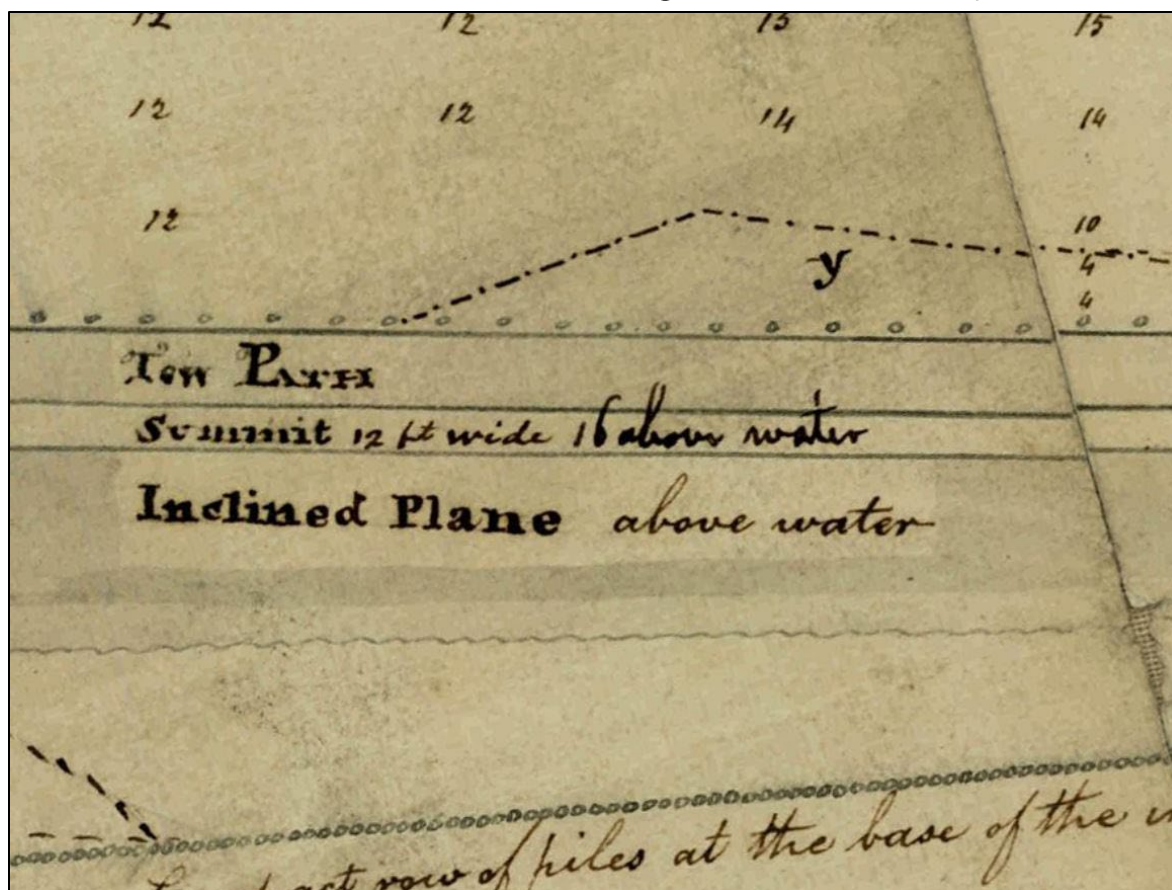 12 12 13 15
12 12 14 14
12 10
y 4
4
Tow Path
Summit 12 ft wide 16 above water
Inclined Plane above water
row of piles at the base of the